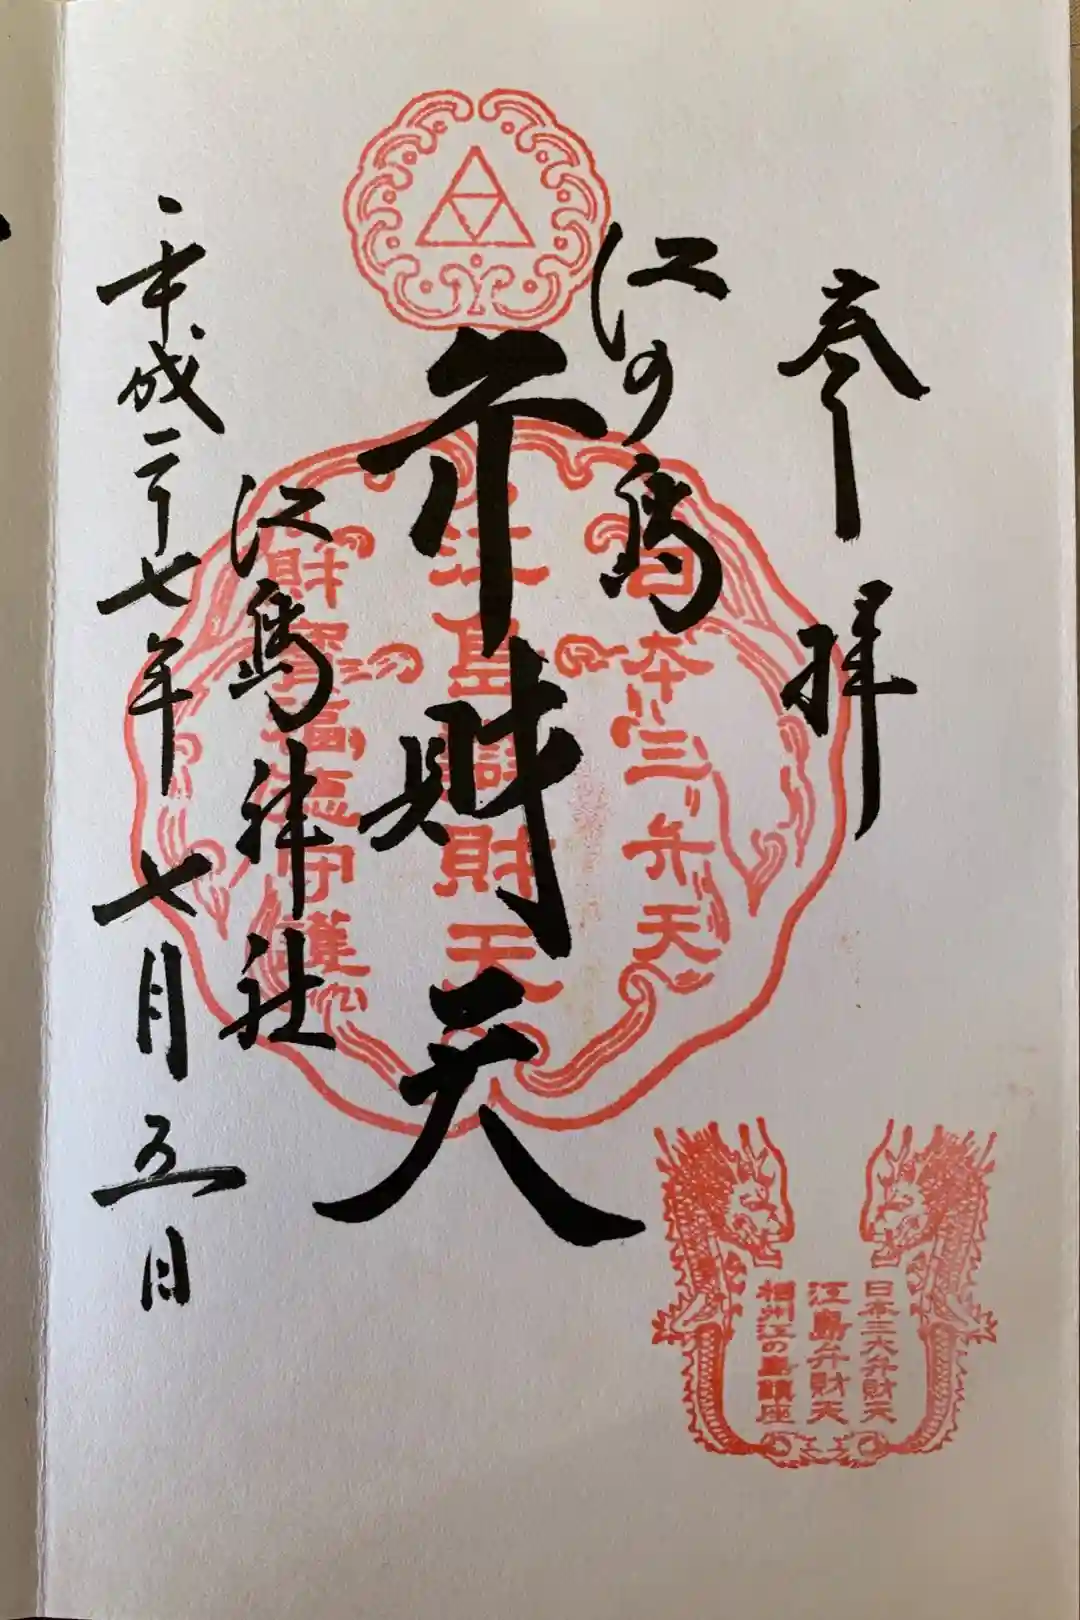 参拝
江の島
弁財天
江島神社
平成二十七年七月五日
日本三弁天
江島辯財天
財寶福德守護
日本三大弁財天
江島弁財天
相州江の島鎮座